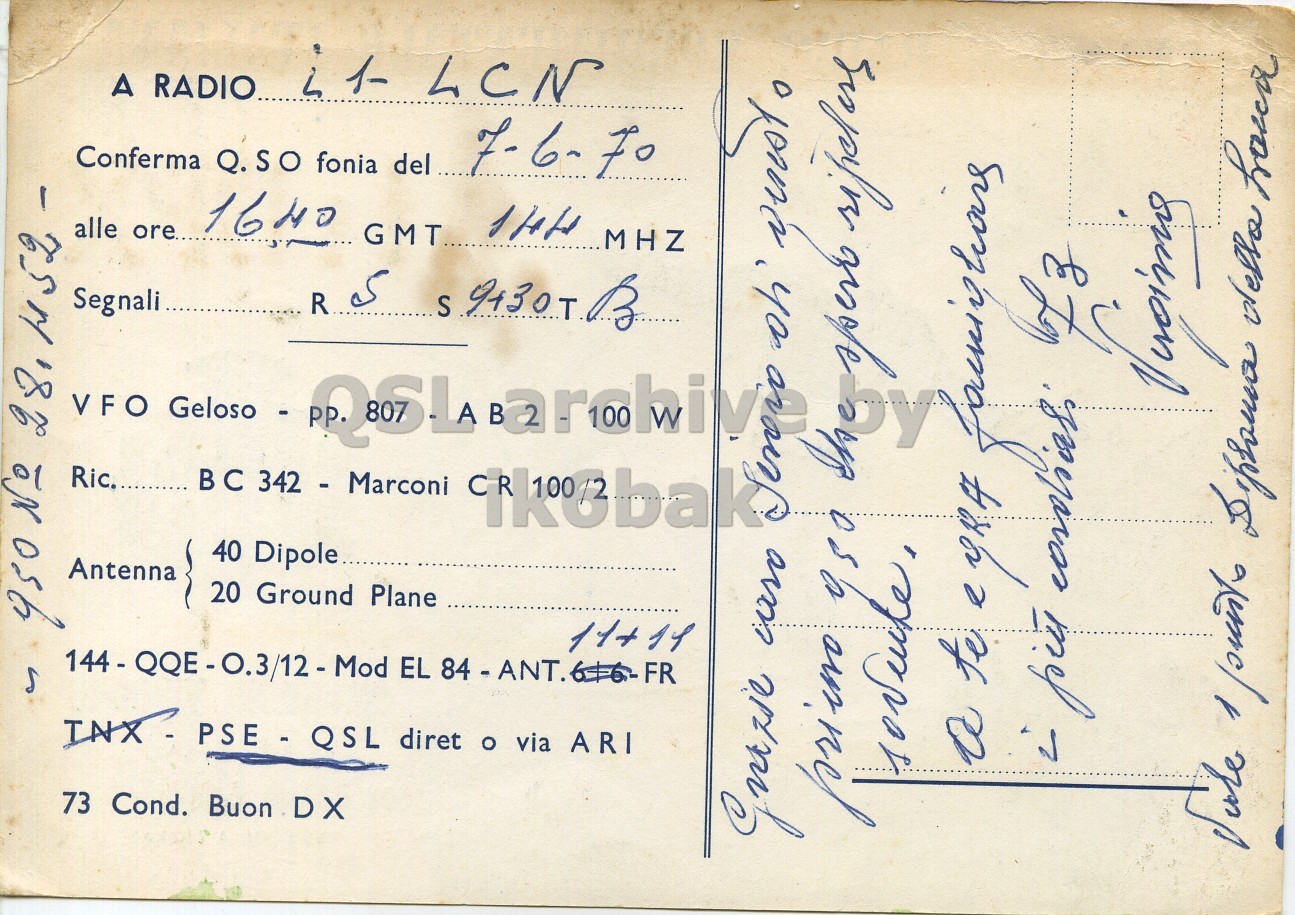 A RADIO i1- LCN
Conferma Q.SO fonia del 7-6-70
alle ore 16,40 GMT 144 MHZ
Segnali R 5 S 9+30 T B
VFO Geloso - pp. 807 - AB 2 - 100 W
Ric. BC 342 - Marconi CR 100/2
Antenna { 40 Dipole
20 Ground Plane
11+11
144 - QQE - O.3/12 - Mod EL 84 - ANT. 6+6 - FR
TNX - PSE - QSL diret o via ARI
73 Cond. Buon DX
~ QSO No 28,452 -
Grazie caro di questo
primo QSO che spero ripetere
sovente.
a te e QRA famigliare
i più cordiali 73
Virginio
Vale 1 punto Diploma della
QSL archive by
ik6bak